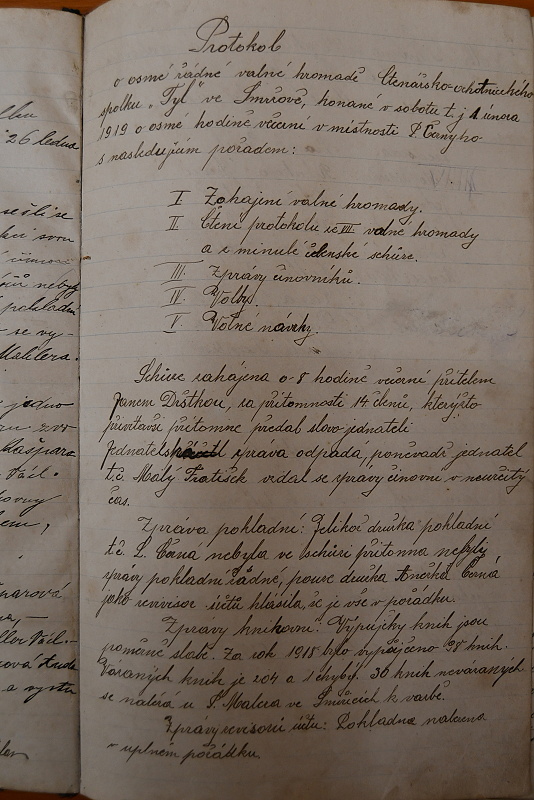 Protokol
o osmé řádné valné hromadě Čtenářsko-ochotnického
spolku „Tyl" ve Smržově, konané v sobotu t. j. 1 února
1919 o osmé hodině večerní v místnosti P. Černyho
s nasledujícim pořadem:
I Zahajení valné hromady.
II Čtení protokolu ze VII valné hromady
a z minulé členské schůze.
III. Zprávy činovníků.
IV. Volby.
V. Volné návrhy.
Schůze zahájena o 8 hodině večerní přítelem
Janem Drštkou, za přítomnosti 14 členů, kterýžto
přivítavši přítomné předal slovo jednateli
Jednatelská zpráva odpadá, poněvadž jednatel
t.č. Malý Fratišek vzdal se zprávy činovní v neurčitý
čas.
Zpráva pokladní: Jelikož družka pokladní
t.č. L. Černá nebyla ve schůzi přítomna nebyly
zprávy pokladní řádné, pouze družka Anežka Černá
jako revivisor účtů hlásila, že je vše v pořádku.
Zprávy knihovní: Výpujčky knih jsou
poměrně slabé. Za rok 1918 bylo vypůjčeno 98 knih.
Vázaných knih je 204 a 1 chybý. 30 knih neváraných
se nalézá u Malera ve Smiřicích k vazbě.
Zprávy revisorů účtu: Pokladna nalezena
v uplném pořádku.
26 ledna
sešli se
svou
nebyly
pokladní
se vy-
Malera.
jedno
Kašpara
Václ.